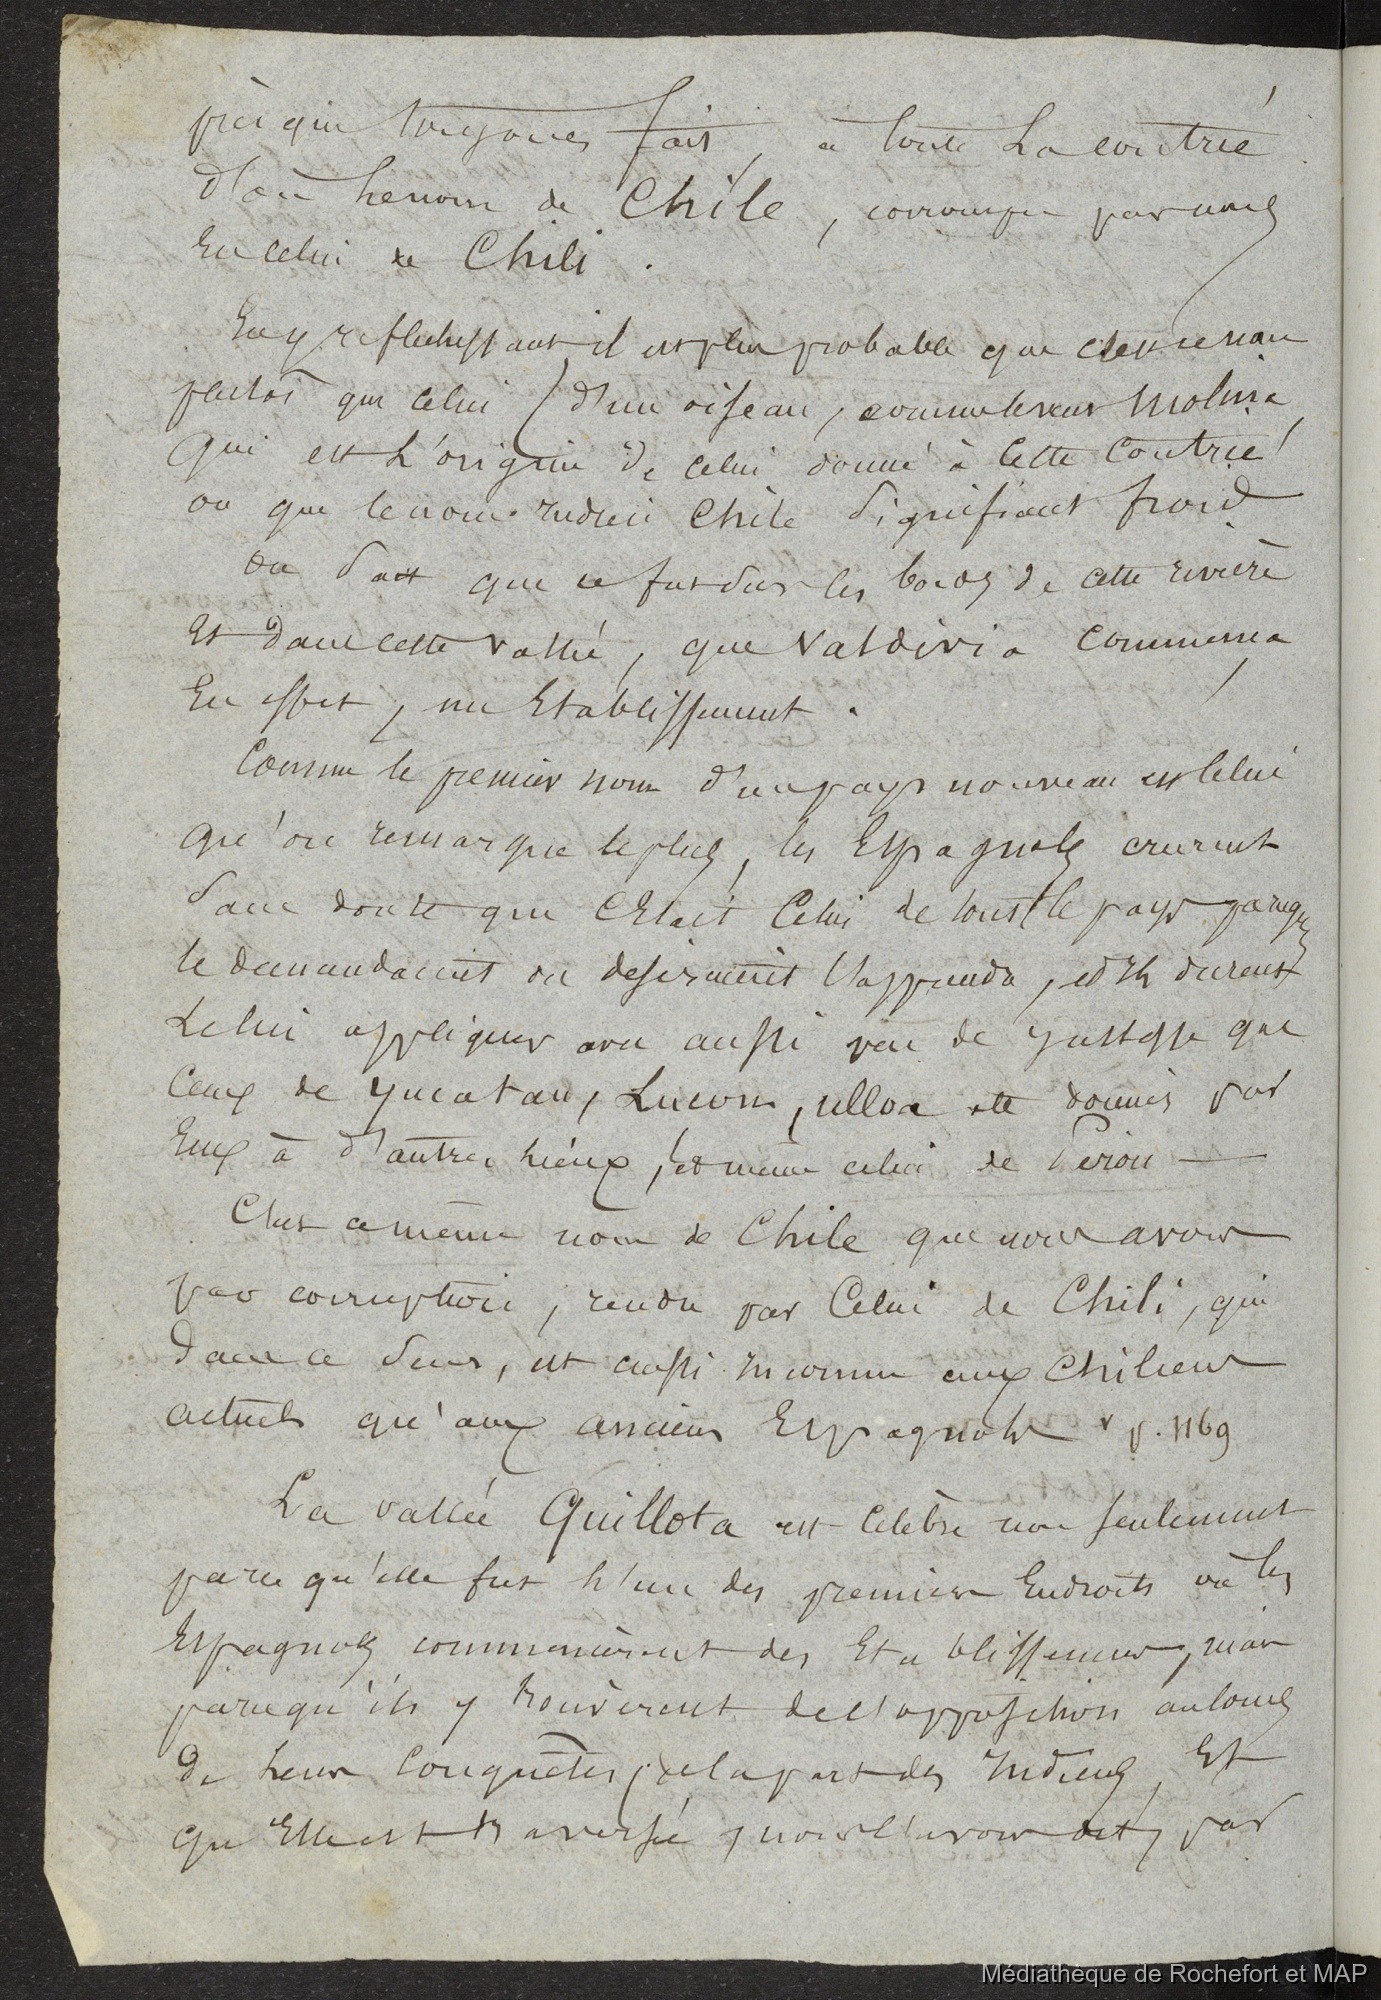 presque toujours fait, a toute La contrée
d'où Le nom de Chile, corrompu par nous
En celui de Chili.
En y reflechissant il est plus probable que c'est ce nom
plutot que celui (d'un oiseau, comme le veut Molina
qui est L'origine de celui donné à Cette Contrée
ou que le nom indien Chile Signifiant froid
on Sait que ce fut Sur les bords de cette rivière
Et dans cette vallée, que Valdivia commença
En effet, un Etablissement.
Comme le premier nom d'un pays nouveau est Celui
qu'on remarque le plus, les Espagnols crurent
Sans doute que C'Etait Celui de tout le pays parcequ'ils
le demandaient ou desiraient l'apprendre, et Ils durent
Le lui appliquer avec aussi peu de Justesse que
Ceux de Yucatan, Lucon, ulloa etc donnés par
Eux à d'autres Lieux, Et meme celui de Perou —
C'est ce même nom de Chile que nous avons
par corruption, rendu par Celui de Chili, qui
dans ce Sens, est aussi Inconnu aux Chiliens
actuels qu'aux anciens Espagnols v p. 1169
La vallée Quillota est Celèbre non Seulement
parce qu'elle fut L'un des premiers Endroits où les
Espagnols commencèrent des Etablissemens, mais
parcequ'ils y trouverent de l'opposition
de Leurs Conquêtes, de la part des Indiens, Et
qu'Elle est traversée, nous l'avons dit, par
Médiathèque de Rochefort et MAP